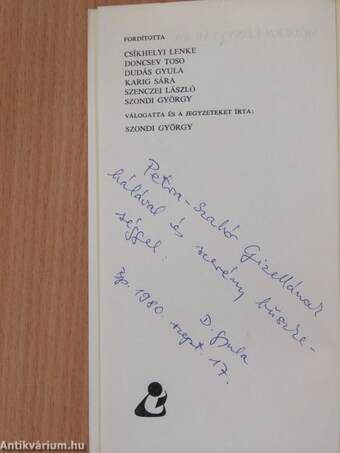 FORDÍTOTTA
CSÍKHELYI LENKE
DONCSEV TOSO
DUDÁS GYULA
KARIG SÁRA
SZENCZEI LÁSZLÓ
SZONDI GYÖRGY
VÁLOGATTA ÉS A JEGYZETEKET ÍRTA:
SZONDI GYÖRGY
Petra-Szabó Gizellának
hálával és szerény büszke-
séggel:
D. Gyula
Bp. 1980. szept. 17.
Antikvárium.hu